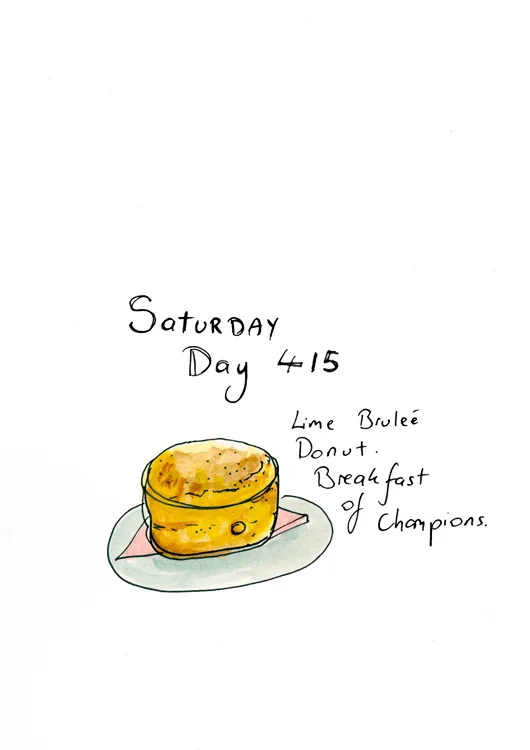 SaTURDAY
Day 415
Lime Bruleé
Donut.
Breakfast
of
Champions.